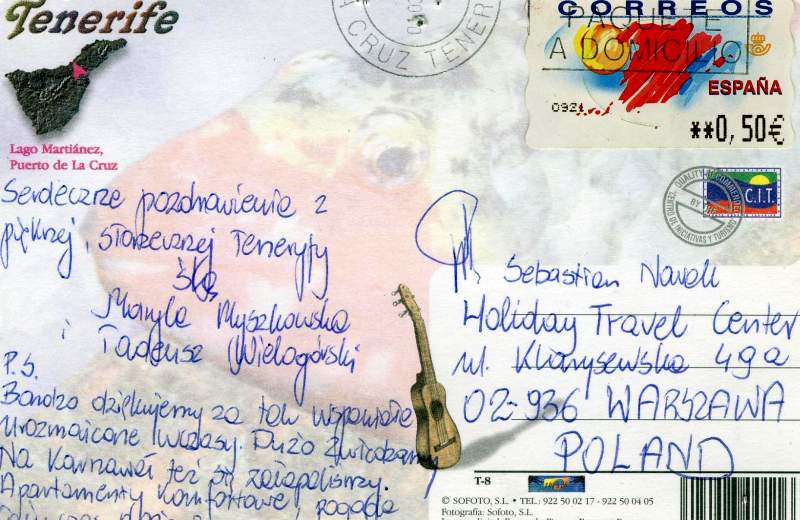 Tenerife
Lago Martiánez,
Puerto de La Cruz
CRUZ TENER
CORREOS
PAQUETE
A DOMICILIO
ESPAÑA
0921
**0,50€
QUALITY RECOMMENDED
BY THE
C.I.T.
CENTRO DE INICIATIVAS Y TURISMO
Serdeczne pozdrowienia z
pięknej, słonecznej Teneryfy
ślą
Maryla Myszkowska
i Tadeusz Wielogórski
P.S.
Bardzo dziękujemy za tak wspaniałe
urozmaicone wczasy. Dużo zwiedzamy
Na Karnawał też się załapaliśmy.
Apartamenty komfortowe, pogoda
Sebastian Nowak
Holiday Travel Center
ul. Klarysewska 49a
02-936 WARSZAWA
POLAND
T-8
© SOFOTO, S.L. • TEL.: 922 50 02 17 - 922 50 04 05
Fotografía: Sofoto, S.L.